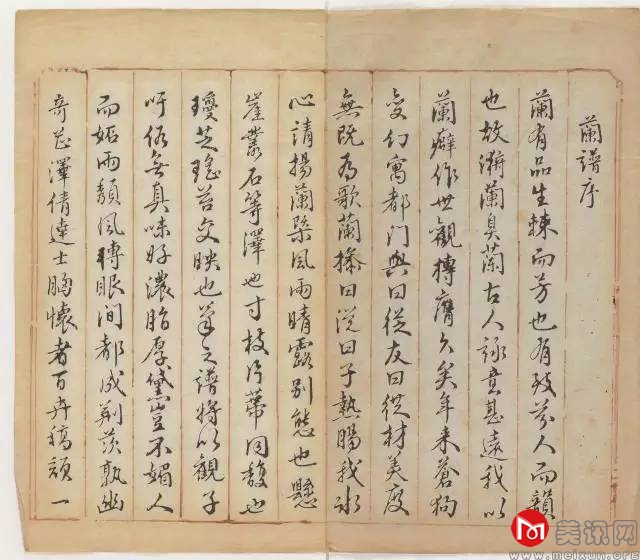 蘭譜序
蘭有品生棘而芳也有致芬人而韻
也故漸蘭臭蘭古人詠意甚遠我以
蘭癖作世觀摶膺久矣年來蒼狗
変幻寓都門與曰從友曰從材美度
無既為歌蘭操曰 曰子熱腸我冰
心請揚蘭槩風雨晴露別態也懸
崖叢石等澤也寸枝片蒂同馥也
瓊芝瑤苔交映也筆之譜將以觀子
吁俗無真味好濃脂厚黛豈不媚人
而妬雨顛風轉眼間都成荊茨孰幽
奇 澤倩達士胸懷者百卉稽顙一
美讯网
www.meixun.org